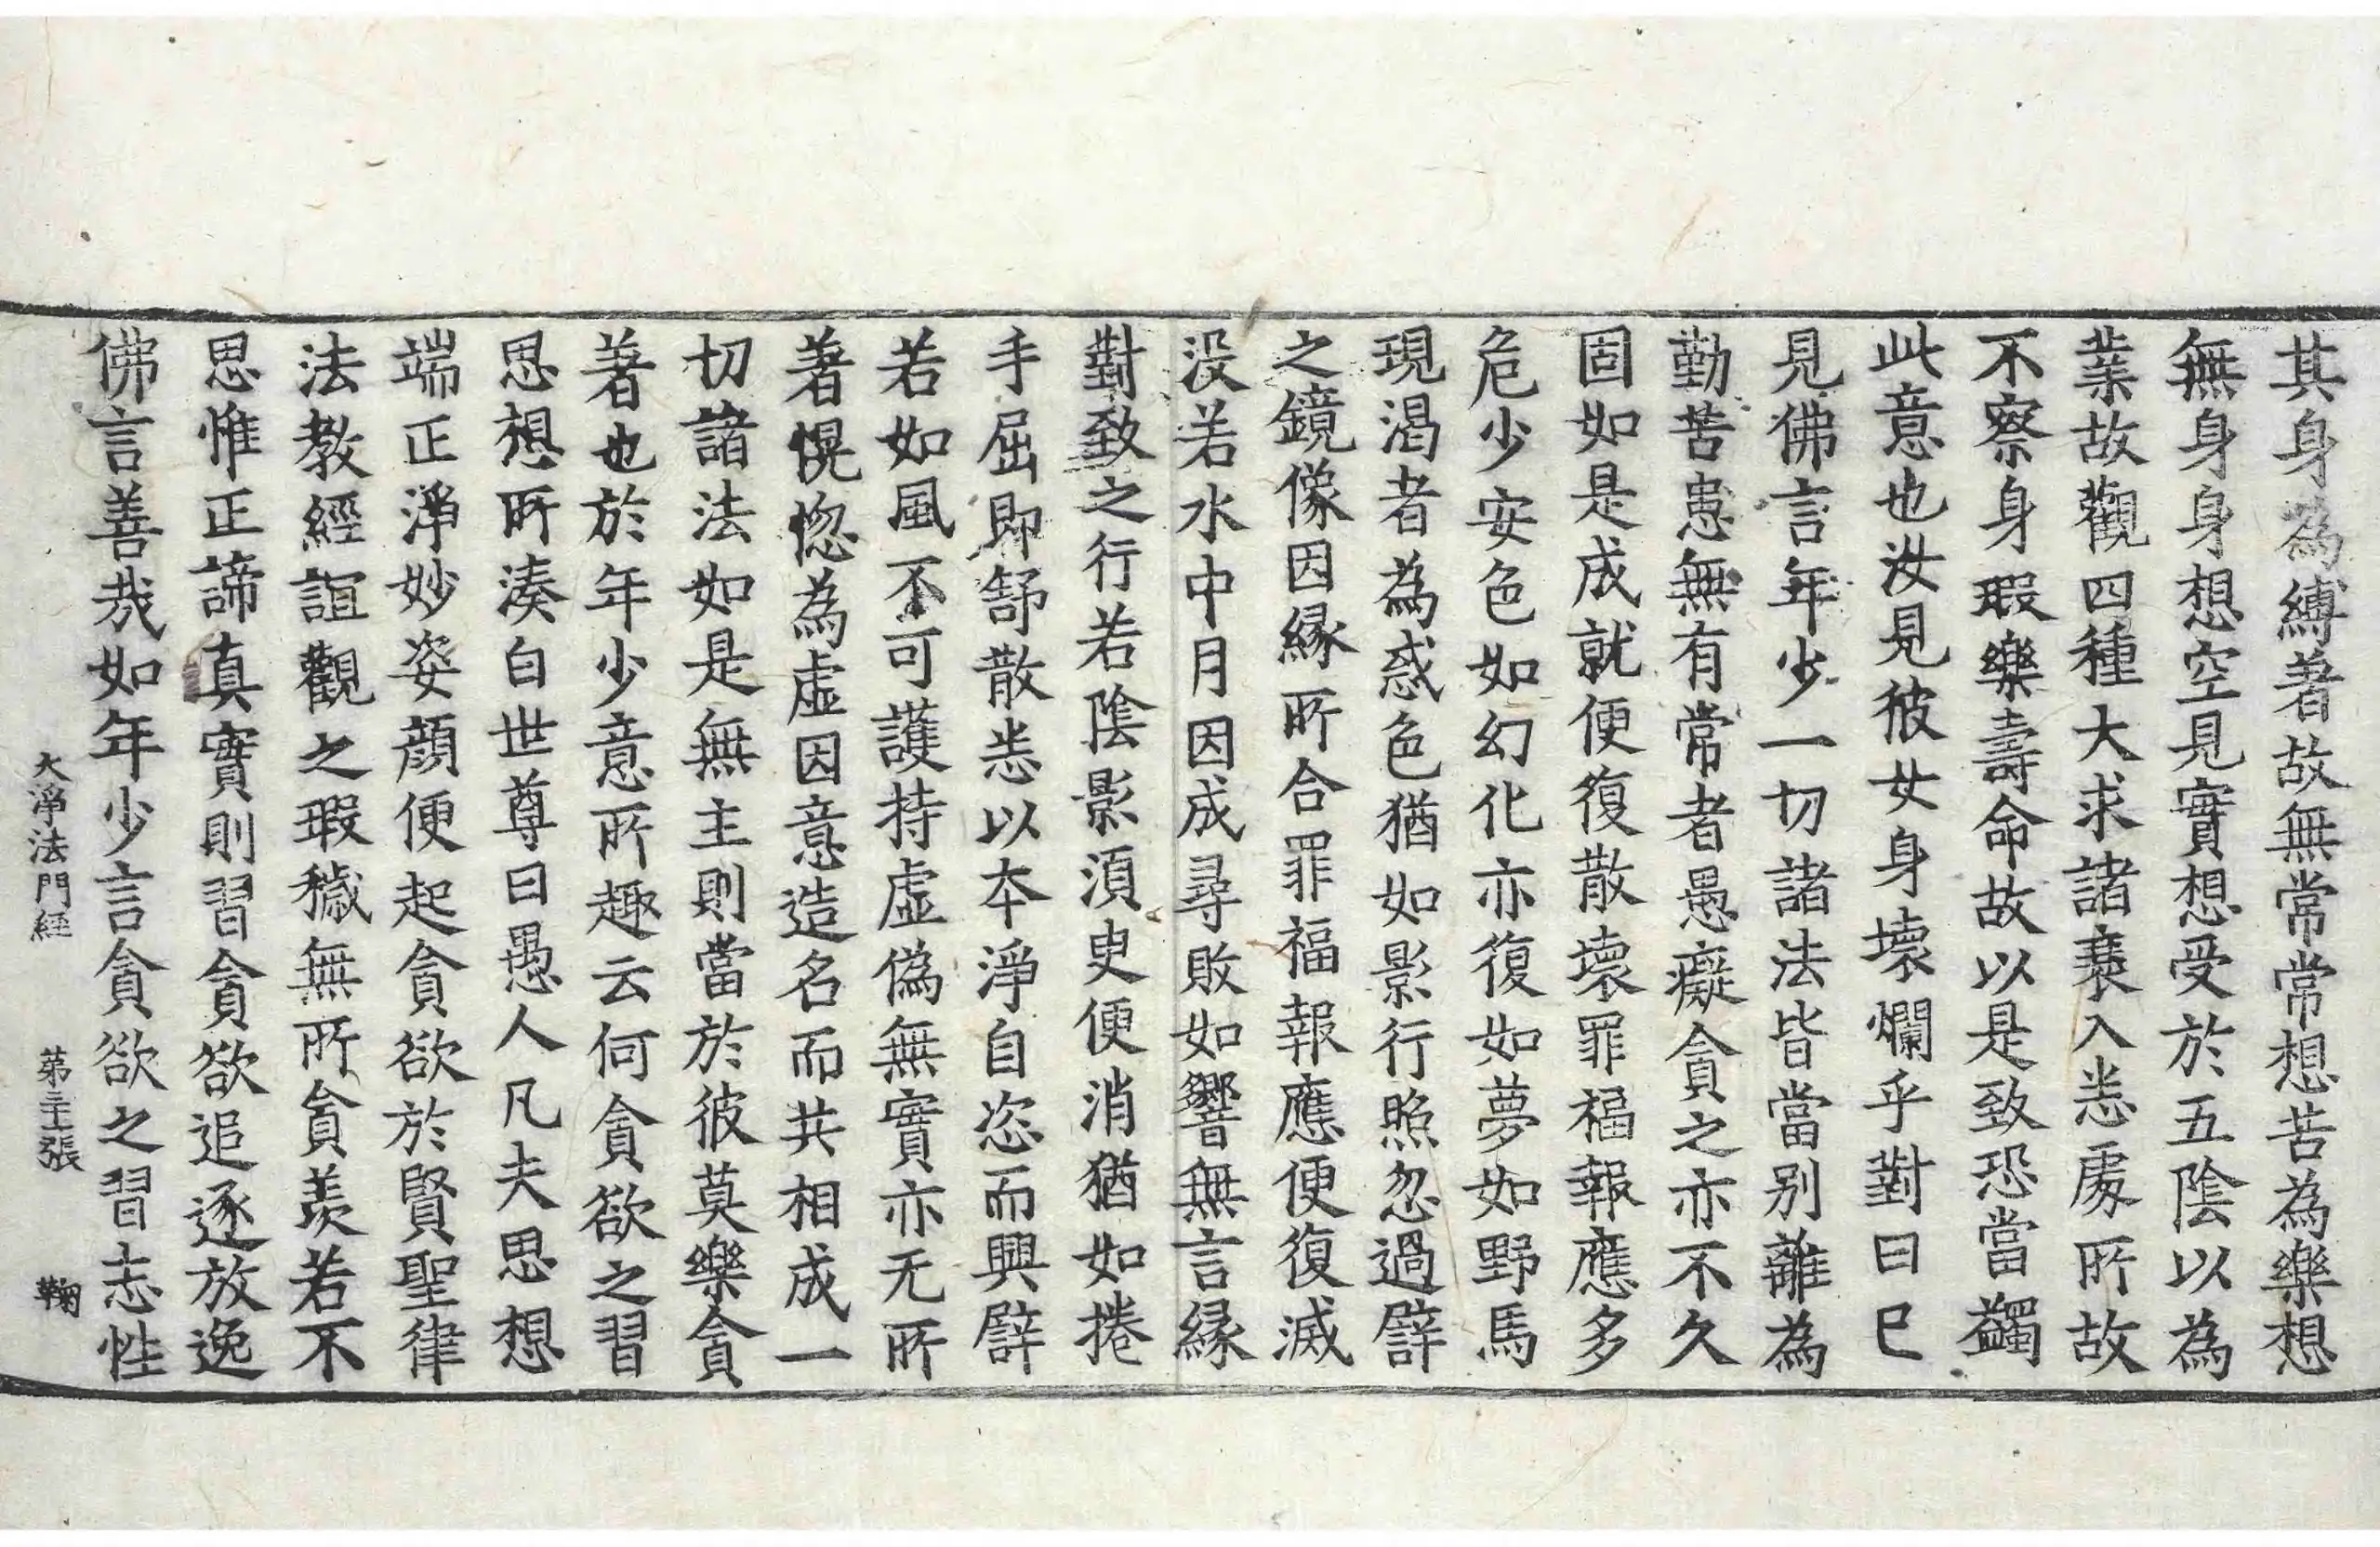 其身為縛著故無常常想苦為樂想
無身身想空見實想受於五陰以為
業故觀四種大求諸衰入恙處所故
不察身瑕樂壽命故以是致恐當蠲
此意也汝見彼女身壞爛乎對曰巳
見佛言年少一切諸法皆當別離為
勤苦患無有常者愚癡貪之亦不久
固如是成就便復散壞罪福報應多
危少安色如幻化亦復如夢如野馬
現渴者為惑色猶如影行照忽過譬
之鏡像因緣所合罪福報應便復滅
没若水中月因成尋敗如響無言緣
對致之行若陰影須臾便消猶如捲
手屈即舒散恙以本淨自恣而興譬
若如風不可護持虛偽無實亦无所
著愰惚為虛因意造名而共相成一
切諸法如是無主則當於彼莫樂貪
著也於年少意所趣云何貪欲之習
思想所湊白世尊曰愚人凡夫思想
端正淨妙姿顏便起貪欲於賢聖律
法教經誼觀之瑕穢無所貪羨若不
思惟正諦真實則習貪欲追逐放逸
佛言善哉如年少言貪欲之習志性
大淨法門經 苐主張 鞠